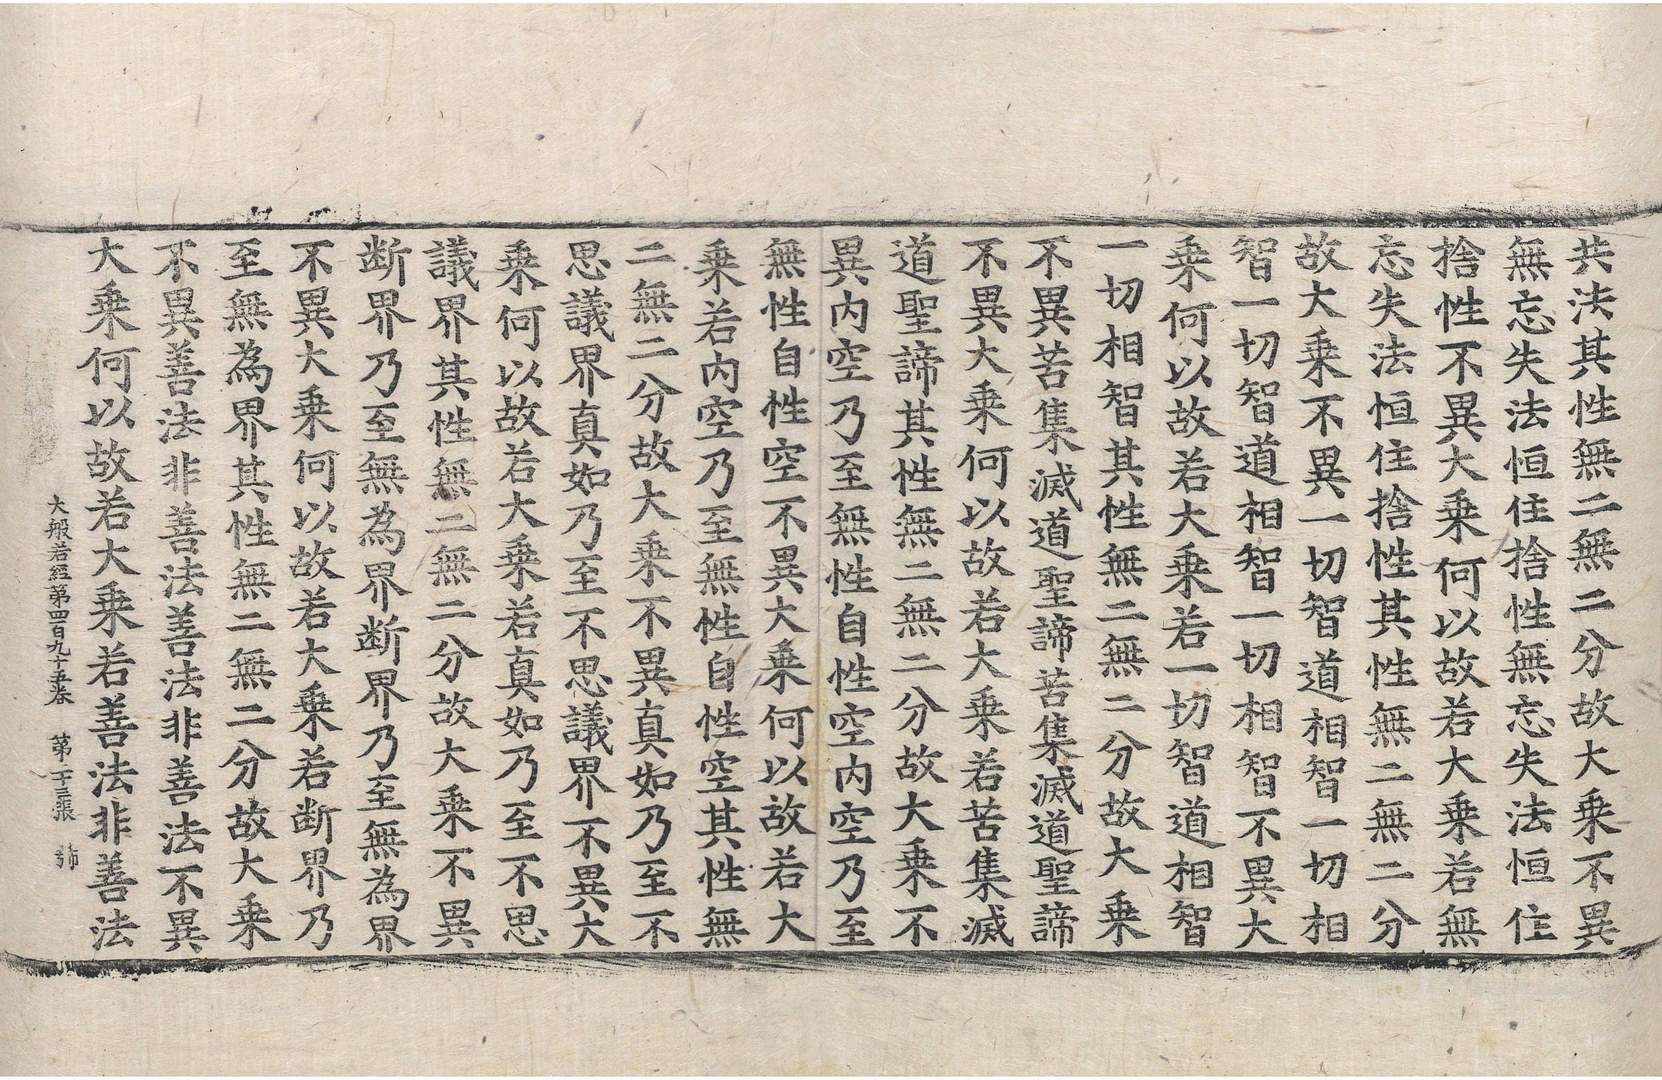 共法其性無二無二分故大乗不異
無忘失法恒住捨性無忘失法恒住
捨性不異大乗何以故若大乗若無
忘失法恒住捨性其性無二無二分
故大乗不異一切智智道相智一切相
智一切智道相智一切相智不異大
乗何以故若大乗若一切智道相智
一切相智其性無二無二分故大乗
不異苦集滅道聖諦苦集滅道聖諦
不異大乗何以故若大乗若苦集滅
道聖諦其性無二無二分故大乗不
異内空乃至無性自性空内空乃至
無性自性空不異大乗何以故若大
乗若内空乃至無性自性空其性無
二無二分故大乗不異真如乃至不
思議界真如乃至不思議界不異大
乗何以故若大乗若真如乃至不思
議界其性無二無二分故大乗不異
断界乃至無為界断界乃至無為界
不異大乗何以故若大乗若断界乃
至無為界其性無二無二分故大乗
不異善法非善法善法非善法不異
大乗何以故若大乗若善法非善法
大般若經第四百九十五卷 第二十三張